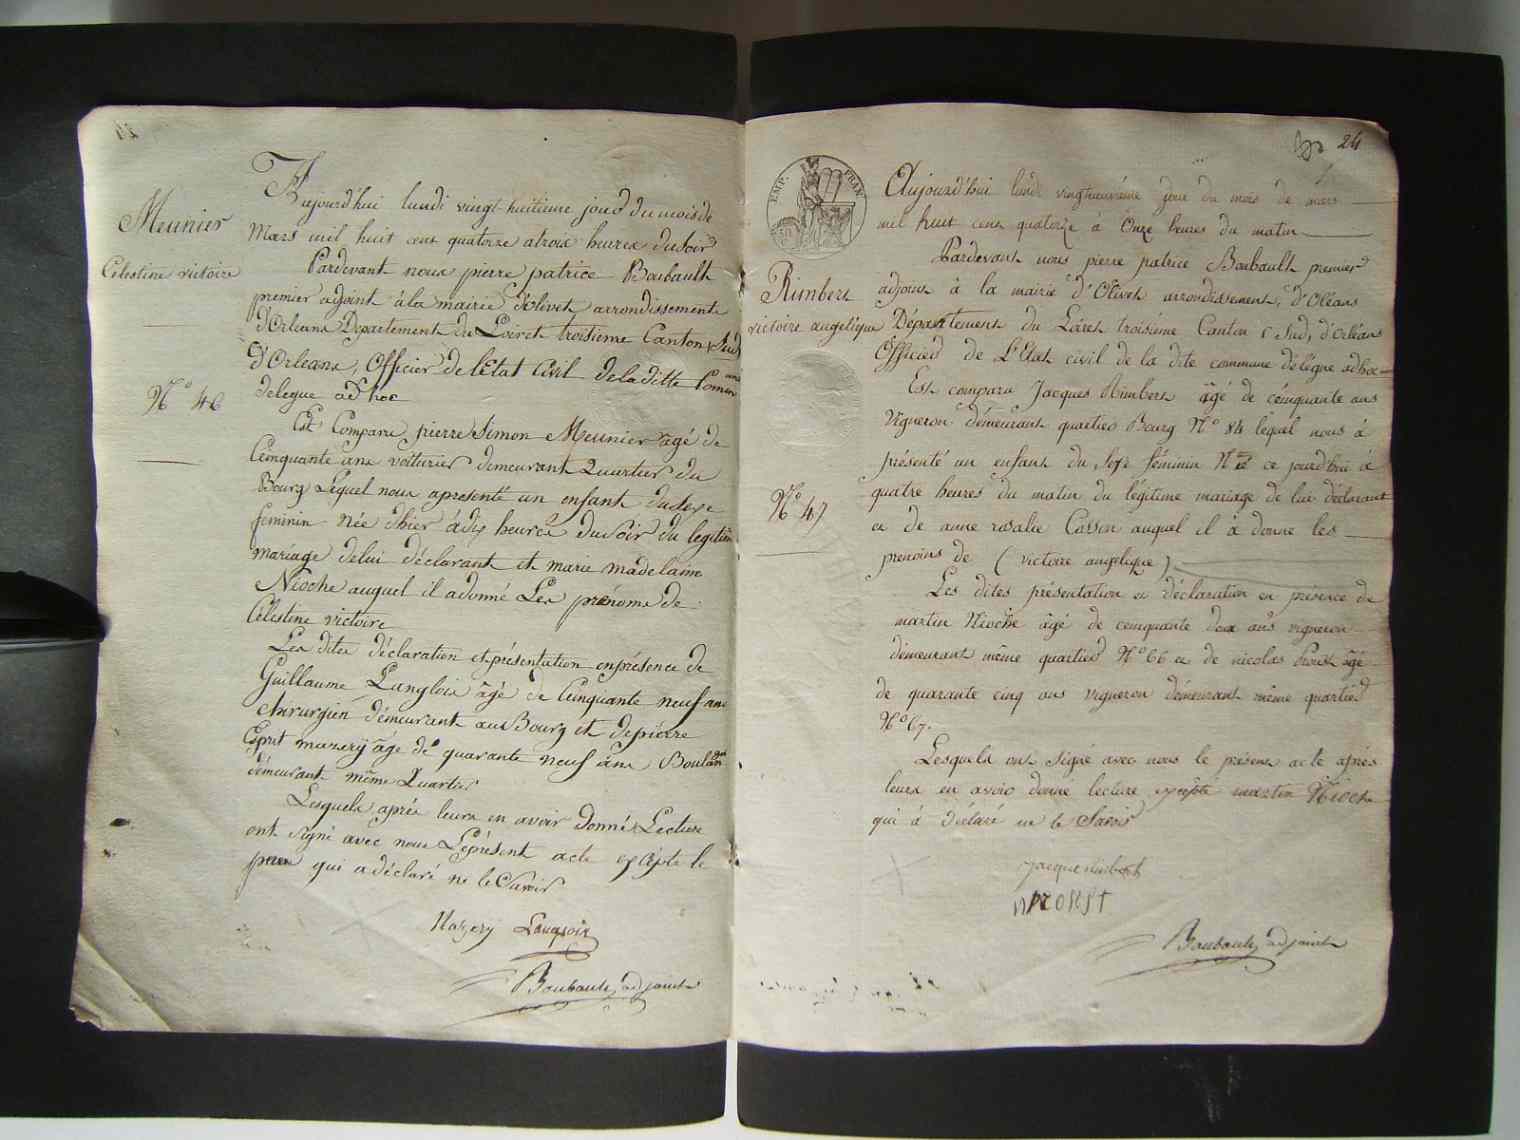 Meunier
Celestine victoire
N.º 46
Aujourd'hui lundi vingt-huitieme jour du mois de
Mars mil huit cent quatorze a trois heures du soir
Pardevant nous pierre patrice Boubault
premier adjoint à la mairie d'olivet arrondissement
d'Orleans Departement du Loiret troisieme Canton Sud
D'Orleans, Officier de l'Etat Civil de la ditte Commune
delegue ad hoc
Est Comparu pierre Simon Meunier agé de
Cinquante ans voiturier demeurant Quartier du
Bourg Lequel nous a presenté un enfant du Sexe
feminin née d'hier à dix heures du Soir du legitime
mariage de lui déclarant et marie madelaine
Nioche auquel il a donné Les prénoms de
Célestine victoire
Les dites déclaration et présentation en présence de
Guillaume Langlois âgé de Cinquante neuf ans
chirurgien démeurant au Bourg et de pierre
Esprit mazery âgé de quarante neuf ans Boulanger
démeurant même Quartier
Lesquels après leurs en avoir donné Lecture
ont signé avec nous Le présent acte excépté le
pere qui a déclaré ne le Savoir
Mazery Langlois
Boubault adjoint
24
EMP. FRAN.
Rimbert
victoire angelique
Nº. 47
Aujourd'hui lundi vingthuitieme jour du mois de mars
mil huit cent quatorze à Onze heures du matin
Pardevant nous pierre patrice Boubault premier
adjoint à la mairie d'Olivet arrondissement, d'Oleans
Département du Loiret troisième Canton Sud, d'Orléans
Officier de L'Etat civil de la dite commune délégué adhoc
Est comparu Jacques Rimbert âgé de cinquante ans
Vigneron démeurant quartier Bourg Nº 84 lequel nous à
présenté un enfant du Sexe féminin Né ce jourd'hui à
quatre heures du matin du légitime mariage de lui déclarant
et de anne rosalie Cosson auquel il à donne les
prenoms de (victoire angelique)
Les dites présentation et déclaration en présence de
martin Nioche âgé de cinquante deux ans vigneron
démeurant même quartier Nº 66 et de nicolas Proust âgé
de quarante cinq ans vigneron démeurant même quartier
Nº 67.
Lesquels ont Signé avec nous le présent acte après
leurs en avoir donne lecture excépte martin Nioche
qui à déclaré ne le Savoir
jacque rimbert
Boubault adjoint